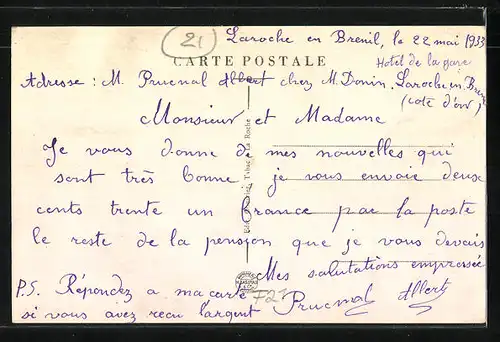 21
Laroche en Brenil, le 22 mai 1933
CARTE POSTALE
Hotel de la gare
Adresse : M. Pruenal Albert chez M. Donin. Laroche en Brenil
(cote d'or)
Monsieur et Madame
Je vous donne de mes nouvelles qui
sont très bonne je vous envoie deux
cents trente un francs par la poste
le reste de la pension que je vous devais
Mes salutations empressée
P.S. Répondez a ma carte
Pruenal Albert
si vous avez reçu l'argent
721
Tabac La Roche